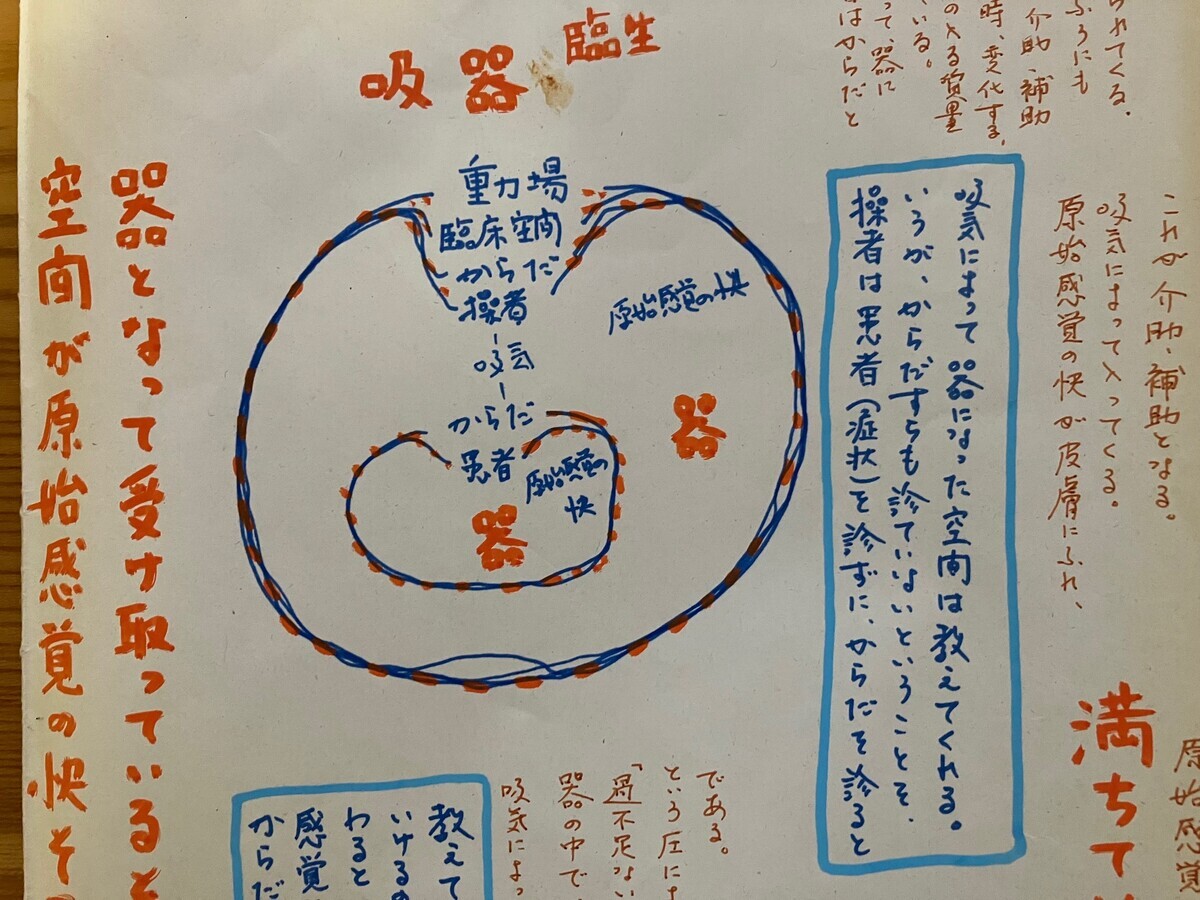 臨生
吸器
られてくる。
ふうにも
介助・補助
時、変化する、
の入る質量
いる。
って、器に
はからだと
これが介助・補助となる。
吸気によって入ってくる。
原始感覚の快が皮膚にふれ、
吸気によって器になった空間は教えてくれる。
いうが、からだすらも診ていないということを、
操者は患者(症状)を診ずに、からだを診ると
重力場
臨床空間
からだ
操者
吸気
からだ
患者
原始感覚の快
器
原始感覚の
快
器
器となって受け取っていると
空間が原始感覚の快その
満ちてい
原始感覚
である。
という圧にす
「過不足ない
器の中で、
吸気によっ
教えて
いけるの
わると
感覚
からだ